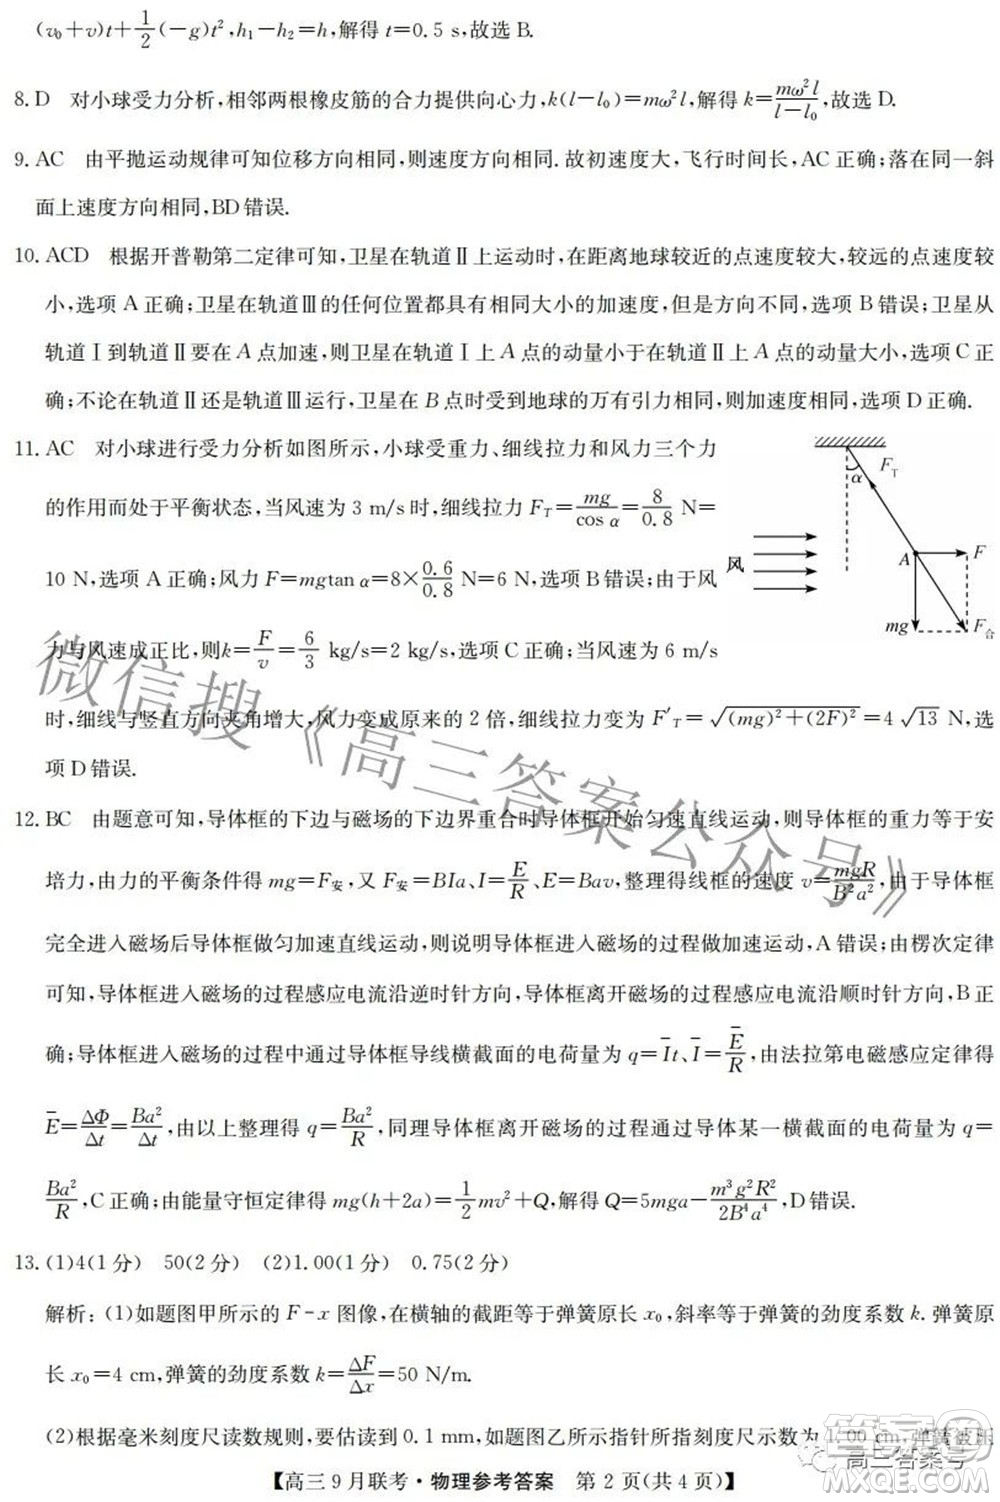 (v₀+v)t+1/2(-g)t²,h₁-h₂=h,解得 t=0.5 s,故选 B.
8. D 对小球受力分析,相邻两根橡皮筋的合力提供向心力,k(l-l₀)=mω²l,解得 k=mω²l/(l-l₀),故选 D.
9. AC 由平抛运动规律可知位移方向相同,则速度方向相同. 故初速度大,飞行时间长,AC 正确;落在同一斜
面上速度方向相同,BD 错误.
10. ACD 根据开普勒第二定律可知,卫星在轨道Ⅱ上运动时,在距离地球较近的点速度较大,较远的点速度较
小,选项 A 正确;卫星在轨道Ⅲ的任何位置都具有相同大小的加速度,但是方向不同,选项 B 错误;卫星从
轨道Ⅰ到轨道Ⅱ要在 A 点加速,则卫星在轨道Ⅰ上 A 点的动量小于在轨道Ⅱ上 A 点的动量大小,选项 C 正
确;不论在轨道Ⅱ还是轨道Ⅲ运行,卫星在 B 点时受到地球的万有引力相同,则加速度相同,选项 D 正确.
11. AC 对小球进行受力分析如图所示,小球受重力、细线拉力和风力三个力
的作用而处于平衡状态,当风速为 3 m/s 时,细线拉力 F_T=mg/cos α=8/0.8 N=
10 N,选项 A 正确;风力 F=mgtan α=8×0.6/0.8 N=6 N,选项 B 错误;由于风
力与风速成正比,则k=F/v=6/3 kg/s=2 kg/s,选项 C 正确;当风速为 6 m/s
时,细线与竖直方向夹角增大,风力变成原来的 2 倍,细线拉力变为 F′_T=√((mg)²+(2F)²)=4√13 N,选
项 D 错误.
α
F_T
风
A
F
mg
F合
12. BC 由题意可知,导体框的下边与磁场的下边界重合时导体框开始匀速直线运动,则导体框的重力等于安
培力,由力的平衡条件得 mg=F安,又 F安=BIa、I=E/R、E=Bav,整理得线框的速度 v=mgR/B²a²,由于导体框
完全进入磁场后导体框做匀加速直线运动,则说明导体框进入磁场的过程做加速运动,A 错误;由楞次定律
可知,导体框进入磁场的过程感应电流沿逆时针方向,导体框离开磁场的过程感应电流沿顺时针方向,B 正
确;导体框进入磁场的过程中通过导体框导线横截面的电荷量为 q=I̅t、I̅=E̅/R,由法拉第电磁感应定律得
E̅=ΔΦ/Δt=Ba²/Δt,由以上整理得 q=Ba²/R,同理导体框离开磁场的过程通过导体某一横截面的电荷量为 q=
Ba²/R,C 正确;由能量守恒定律得 mg(h+2a)=1/2mv²+Q,解得 Q=5mga-m³g²R²/2B⁴a⁴,D 错误.
13. (1)4(1 分) 50(2 分) (2)1.00(1 分) 0.75(2 分)
解析:(1)如题图甲所示的 F-x 图像,在横轴的截距等于弹簧原长 x₀,斜率等于弹簧的劲度系数 k. 弹簧原
长 x₀=4 cm,弹簧的劲度系数 k=ΔF/Δx=50 N/m.
(2)根据毫米刻度尺读数规则,要估读到 0.1 mm,如题图乙所示指针所指刻度尺示数为1.00 cm,弹簧被压
【高三 9 月联考·物理参考答案 第 2 页(共 4 页)】
微信搜《高三答案公众号》
高三答案号
答案圈
MXQE.COM